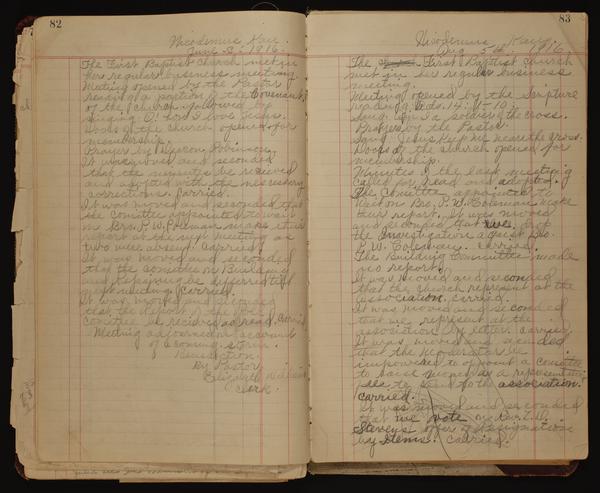 82
Nicodemus Kan.
June 3, 1916.
The First Baptist Church met in
her regular business meeting.
Meeting opened by the Pastor
reading a portion of the Covenant
of the church followed by
singing O! how I love Jesus.
Doors of the church opened for
membership.
Prayer by Deacon Robinson.
It was moved and seconded
that the minutes be received
and adopted with the necessary
corrections. Carried.
It was moved and seconded that
the Comittee appointed to wait
on Bro. P.W. Coleman make their
report at the next meeting as
two were absent. Carried.
It was moved and seconded
that the Comittee on Building
and Repairing be differred till
next meeting. Carried.
It was moved and seconded
that the Report of the
Comittee be received as read. Carried.
Meeting adjourned on account
of a coming storm.
Benediction
By Pastor
Elizabeth
Clerk.
83
Nicodemus Kans.
Aug. 5th, 1916.
The First Baptist church
met in her regular business
meeting.
Meeting opened by the Scripture
reading 14: 1-10.
Song Am I a soldier of the Cross.
Prayer by the Pastor.
Song Jesus Keep me near the cross.
Doors of the church opened for
membership.
Minutes of the last meeting
called for, read and adopted.
The Comittee appointed to
wait on Bro. P.W. Coleman make
their report. It was moved
and seconded that we drop
the investigation against Bro.
P.W. Coleman. Carried.
The Building Committee made
no report.
It was moved and seconded
that the church represent at the
association. Carried.
It was moved and seconded
that we represent at the
association by letter. Carried.
It was moved and seconded
that the Moderator be
impowered to appoint a comittee
to raise means as a representation
fee to send to the association.
Carried.
It was moved and seconded
that we vote on
Stevens offer of Resignation
by items. Carried.